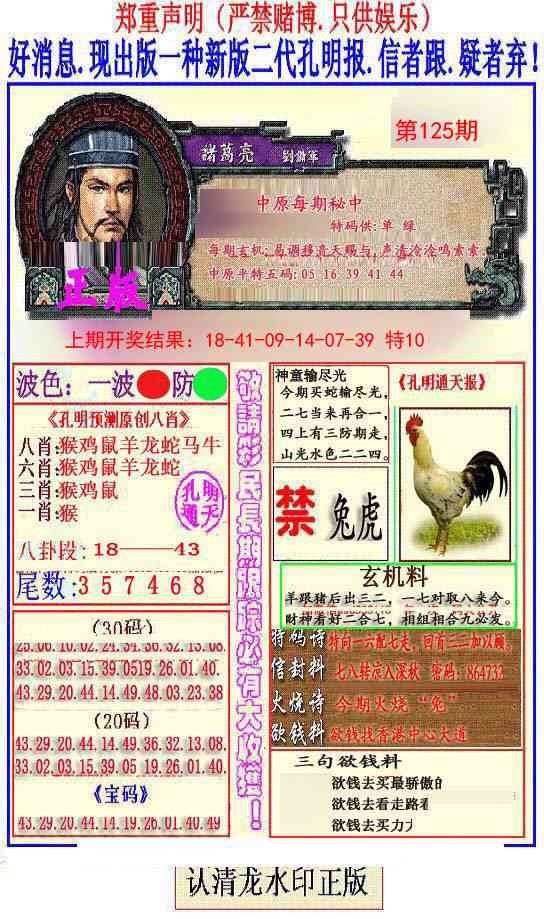 郑重声明（严禁赌博.只供娱乐）
好消息.现出版一种新版二代孔明报.信者跟.疑者弃!
第125期
諸葛亮 劉備軍
中原每期秘中
特码供:单 绿
每期玄机:易调移音天赐与,声清泠泠鸣索索.
中原平特五码:05 16 39 41 44
正版
上期开奖结果: 18-41-09-14-07-39 特10
波色：一波 防
《孔明预测原创八肖》
八肖:猴鸡鼠羊龙蛇马牛
六肖:猴鸡鼠羊龙蛇
三肖:猴鸡鼠
一肖:猴
孔明
通天
八卦段：18——43
尾数:3 5 7 4 6 8
(30码)
25.06.10.02.24.34.36.32.13.08.
33.02.03.15.39.0519.26.01.40.
43.29.20.44.14.49.48.03.23.38
(20码)
43.29.20.44.14.49.36.32.13.08.
33.02.03.15.39.05.19.26.01.40
《宝码》
43.29.20.44.14.19.26.01.40.49
敬請彩民長期跟踪必有大收獲！
神童输尽光
今期买蛇输尽光，
二七当来再合一，
四上有三防期走，
山光水色二二四。
《孔明通天报》
禁 兔虎
玄机料
羊跟猪后出三二，一七对取八来今。
财神看好二合七，相组相合九必发。
特码诗 特向一六配七走，回首三二加以顾。
信封料 七八转应入深秋 密码: 864733
火烧诗 今期火烧“兔”
欲钱料 欲钱找香港中心大道
三句欲钱料
欲钱去买最骄傲的
欲钱去看走路看
欲钱去买力
认清龙水印正版